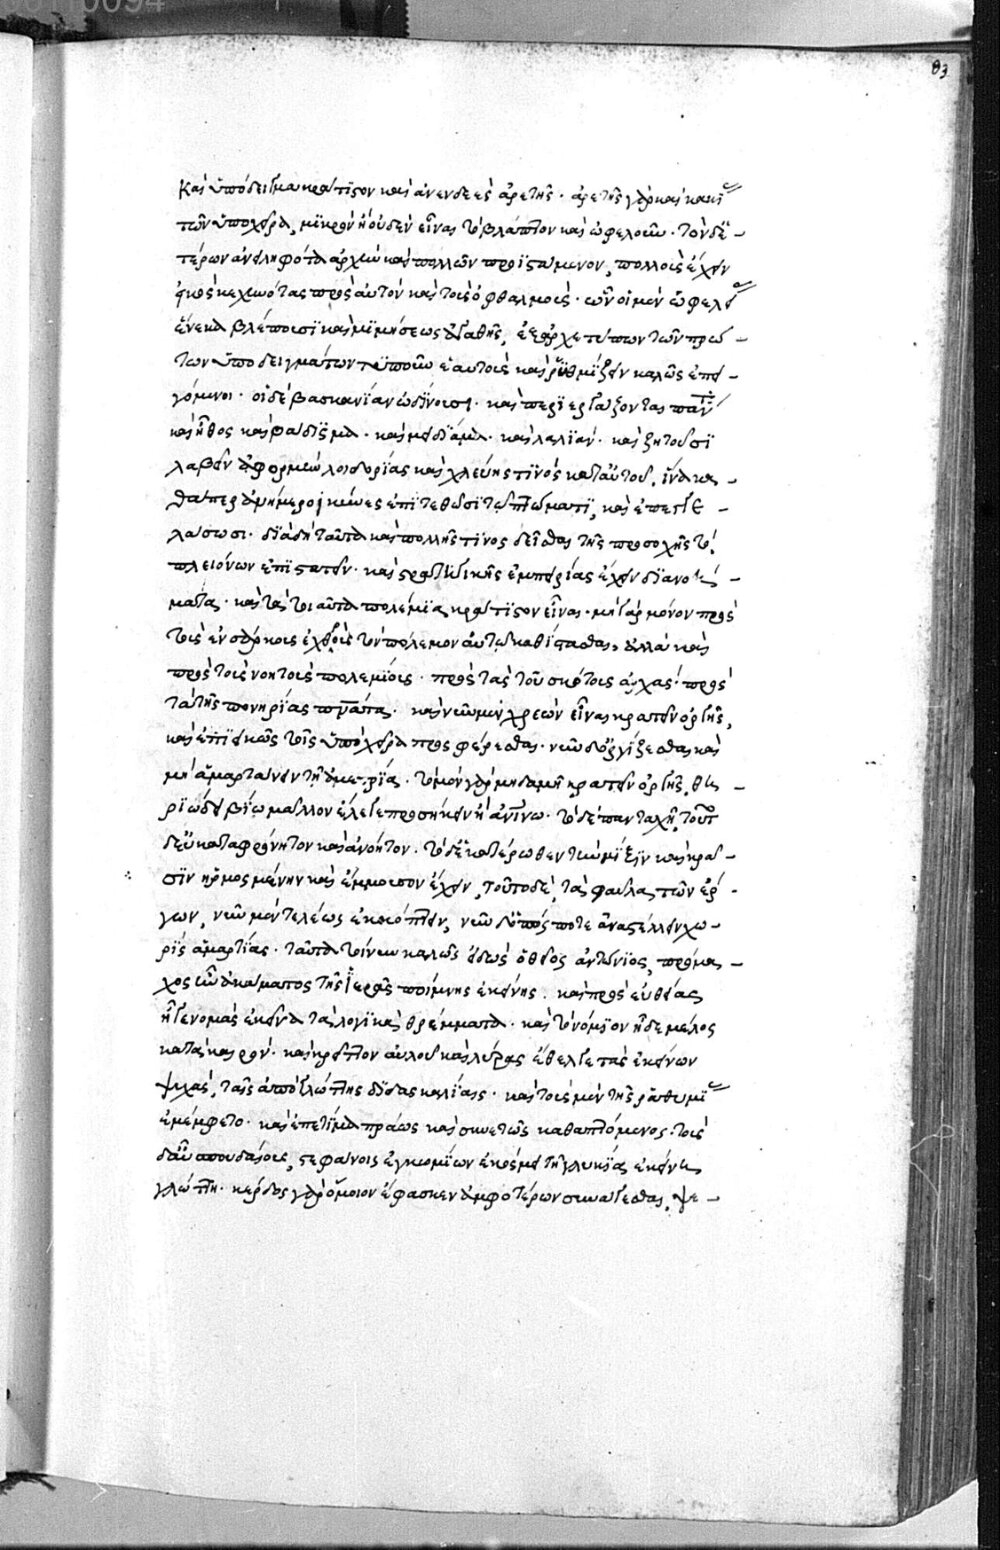 83
καὶ ὑπόδειγμα κράτιστον καὶ ἀνενδεὲς ἀρετῆς· ἀρετῆς γὰρ καὶ κακί
τῶν ὑποχείρια, μικρὸν ἢ οὐδὲν εἶναι τὸ βλάπτον καὶ ὠφελοῦν· τὸν δὲ
τέρων ἀνειληφότα ἀρχὴν καὶ πολλῶν προϊστάμενον, πολλοὺς ἔχειν
κεχηνότας πρὸς αὐτὸν καὶ τοῖς ὀφθαλμοῖς· ὧν οἱ μὲν ὠφελεί
ἕνεκα βλέπουσι καὶ μιμήσεως ἀγαθῆς, ἐξ ἀρχετύπων τῶν πρώ
των ὑποδειγμάτων τυποῦν ἑαυτοὺς καὶ ῥυθμίζειν καλῶς ἐπει
γόμενοι· οἱ δὲ βασκανίαν ὠδίνουσι· καὶ περιεργάζονται πᾶν
καὶ ἦθος καὶ βάδισμα· καὶ μειδίαμα· καὶ λαλιάν· καὶ ζητοῦσι
λαβεῖν ἀφορμὴν λοιδορίας καὶ χλεύης τινὸς κατ' αὐτοῦ, ἵνα κα
θάπερ ἀνήμεροι κύνες ἐπιτεθῶσι τῷ πτώματι, καὶ ἐπεγγε
λάσωσι· διὰ δὴ ταῦτα καὶ πολλῆς τινος δεῖσθαι τῆς προσοχῆς τὸν
πλειόνων ἐπιστατεῖν· καὶ στρατηγικῆς ἐμπειρίας ἔχειν διανοή
ματα· καὶ τὰ τοιαῦτα πολέμια κράτιστον εἶναι· μὴ γὰρ μόνον πρὸς
τοὺς ἐν σάρκοις ἐχθροὺς τὸν πόλεμον αὐτῷ καθίστασθαι, ἀλλὰ καὶ
πρὸς τοὺς νοητοὺς πολεμίους· πρὸς τὰς τοῦ σκότους ἀρχάς· πρὸς
τὰ τῆς πονηρίας πνεύματα· καὶ νῦν μὲν χρεὼν εἶναι κρατεῖν ὀργῆς,
καὶ ἐπιεικῶς τοῖς ὑποχείρια προσφέρεσθαι· νῦν δ' ὀργίζεσθαι καὶ
μὴ ἁμαρτάνειν τῇ ἀμετρίᾳ· τὸ μὲν γὰρ μηδαμῆ κρατεῖν ὀργῆς, θη
ριώδει βίῳ μᾶλλον ἔλεγε προσήκειν ἢ ἀνθρώπῳ· τὸ δὲ πανταχῆ, τοῦτ
δ' εὐκαταφρόνητον καὶ ἀνόητον· τὸ δὲ ἑκατέρωθεν τὴν μίξιν καὶ κρᾶ
σιν ἡρμοσμένην καὶ ἔμμουσον ἔχειν, τοῦτο δὲ, τὰ φαῦλα τῶν ἔρ
γων, νῦν μὲν τελέως ἐκκόπτειν, νῦν δ' ὅπως ποτε ἀναστέλλειν χω
ρὶς ἁμαρτίας· ταῦτα τοίνυν καλῶς εἰδὼς ὁ θεῖος ἀντώνιος, πρόμα
χος ἦν ἀκάματος τῆς ἱερᾶς ποίμνης ἐκείνης· καὶ πρὸς εὐθείας
ἦγε νομὰς ἐκεῖνα τὰ λογικὰ θρέμματα· καὶ τὸ νόμιον ᾖδε μέλος
κατὰ καιρόν· καὶ κρεῖττον αὐλοῦ καὶ λύρας ἔθελγε τὰς ἐκείνων
ψυχὰς, ταῖς ἀπὸ γλώττης δυσὶ καλίαις· καὶ τοὺς μὲν τῆς ῥαθυμί
ἐμέμφετο· καὶ ἐπετίμα πράως καὶ συνετῶς καθαπτόμενος· τοὺς
δ' αὖ σπουδαίους, στεφάνοις ἐγκωμίων ἐκόσμει τῇ γλυκείᾳ ἐκείνῃ
γλώττῃ· κέρδος γὰρ ὅμοιον ἔφασκεν ἀμφοτέρων συνάγεσθαι, ψε